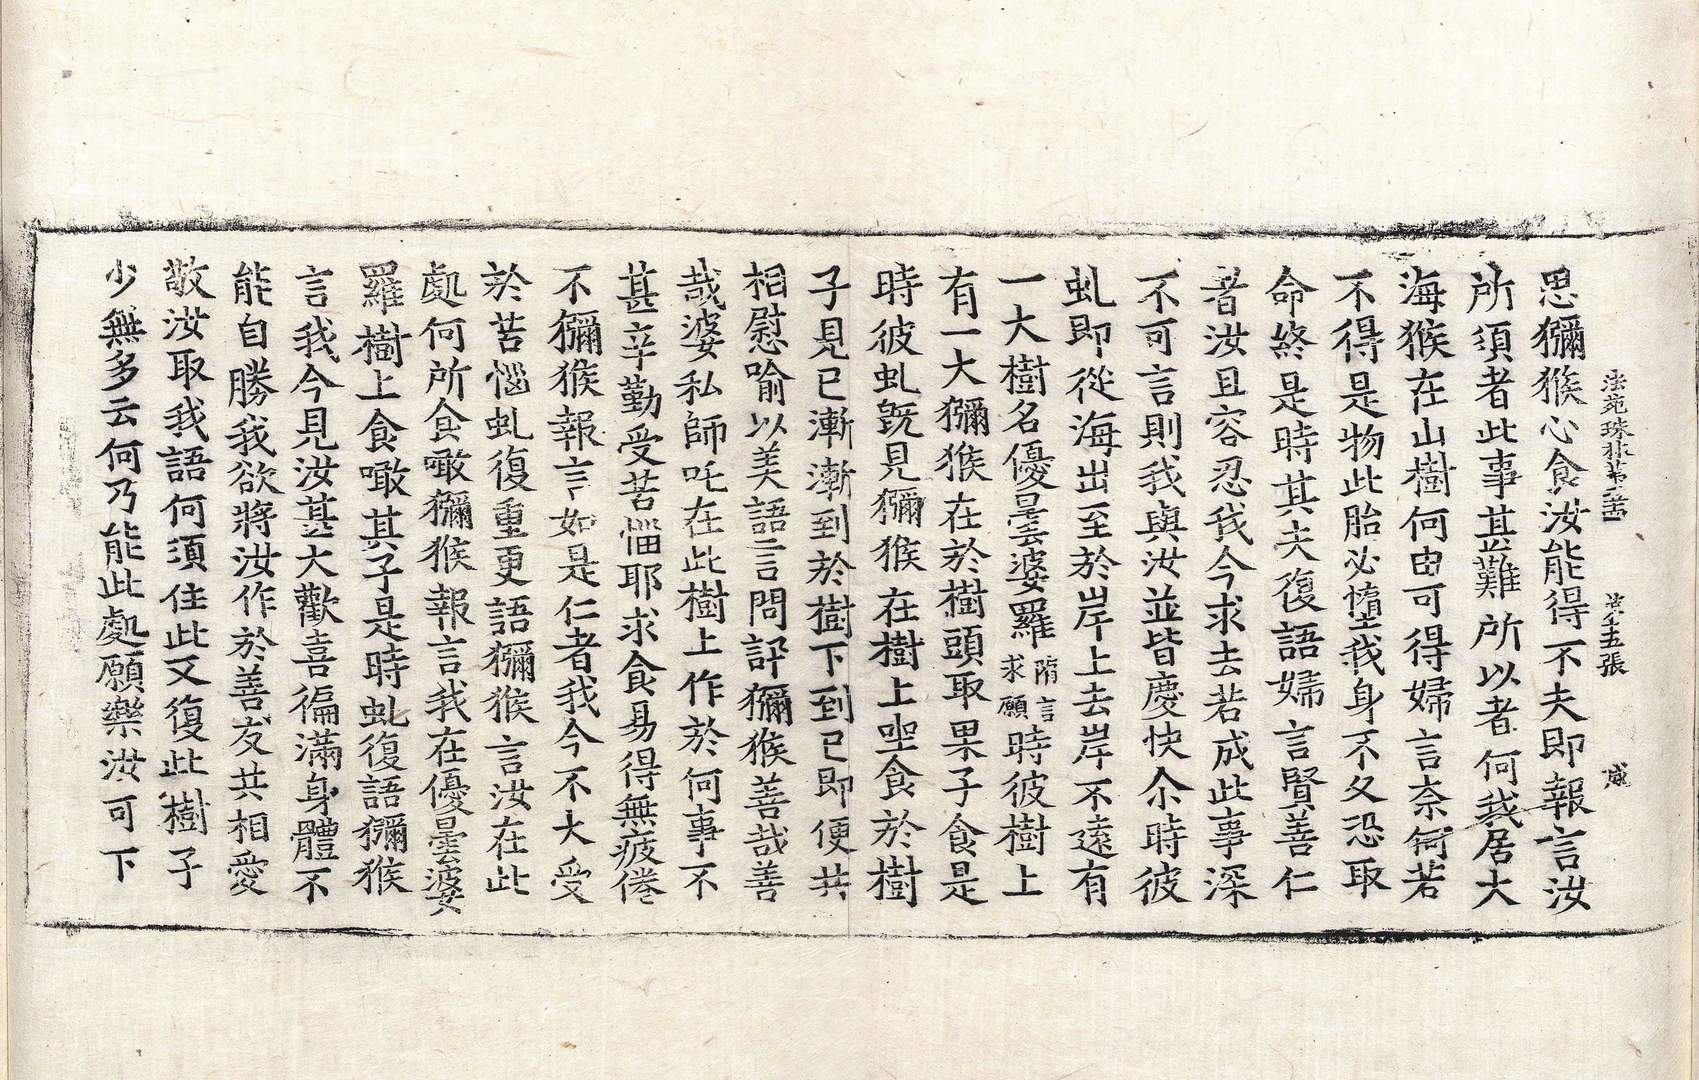 法苑珠林第五十四 第十五張 咸
思獼猴心食汝能得不夫即報言汝
所須者此事甚難所以者何我居大
海猴在山樹何由可得婦言奈何若
不得是物此胎必墮我身不久恐取
命終是時其夫復語婦言賢善仁
者汝且容忍我今求去若成此事深
不可言則我與汝並皆慶快尒時彼
虬即從海出至於岸上去岸不遠有
一大樹名優曇婆羅隋言求願時彼樹上
有一大獼猴在於樹頭取果子食是
時彼虬既見獼猴在樹上坐食於樹
子見已漸漸到於樹下到已即便共
相慰喻以美語言問訊獼猴善哉善
哉婆私師吒在此樹上作於何事不
甚辛勤受苦惱耶求食易得無疲倦
不獼猴報言如是仁者我今不大受
於苦惱虬復重更語獼猴言汝在此
處何所食噉獼猴報言我在優曇婆
羅樹上食噉其子是時虬復語獼猴
言我今見汝甚大歡喜徧滿身體不
能自勝我欲將汝作於善友共相愛
敬汝取我語何須住此又復此樹子
少無多云何乃能此處願樂汝可下